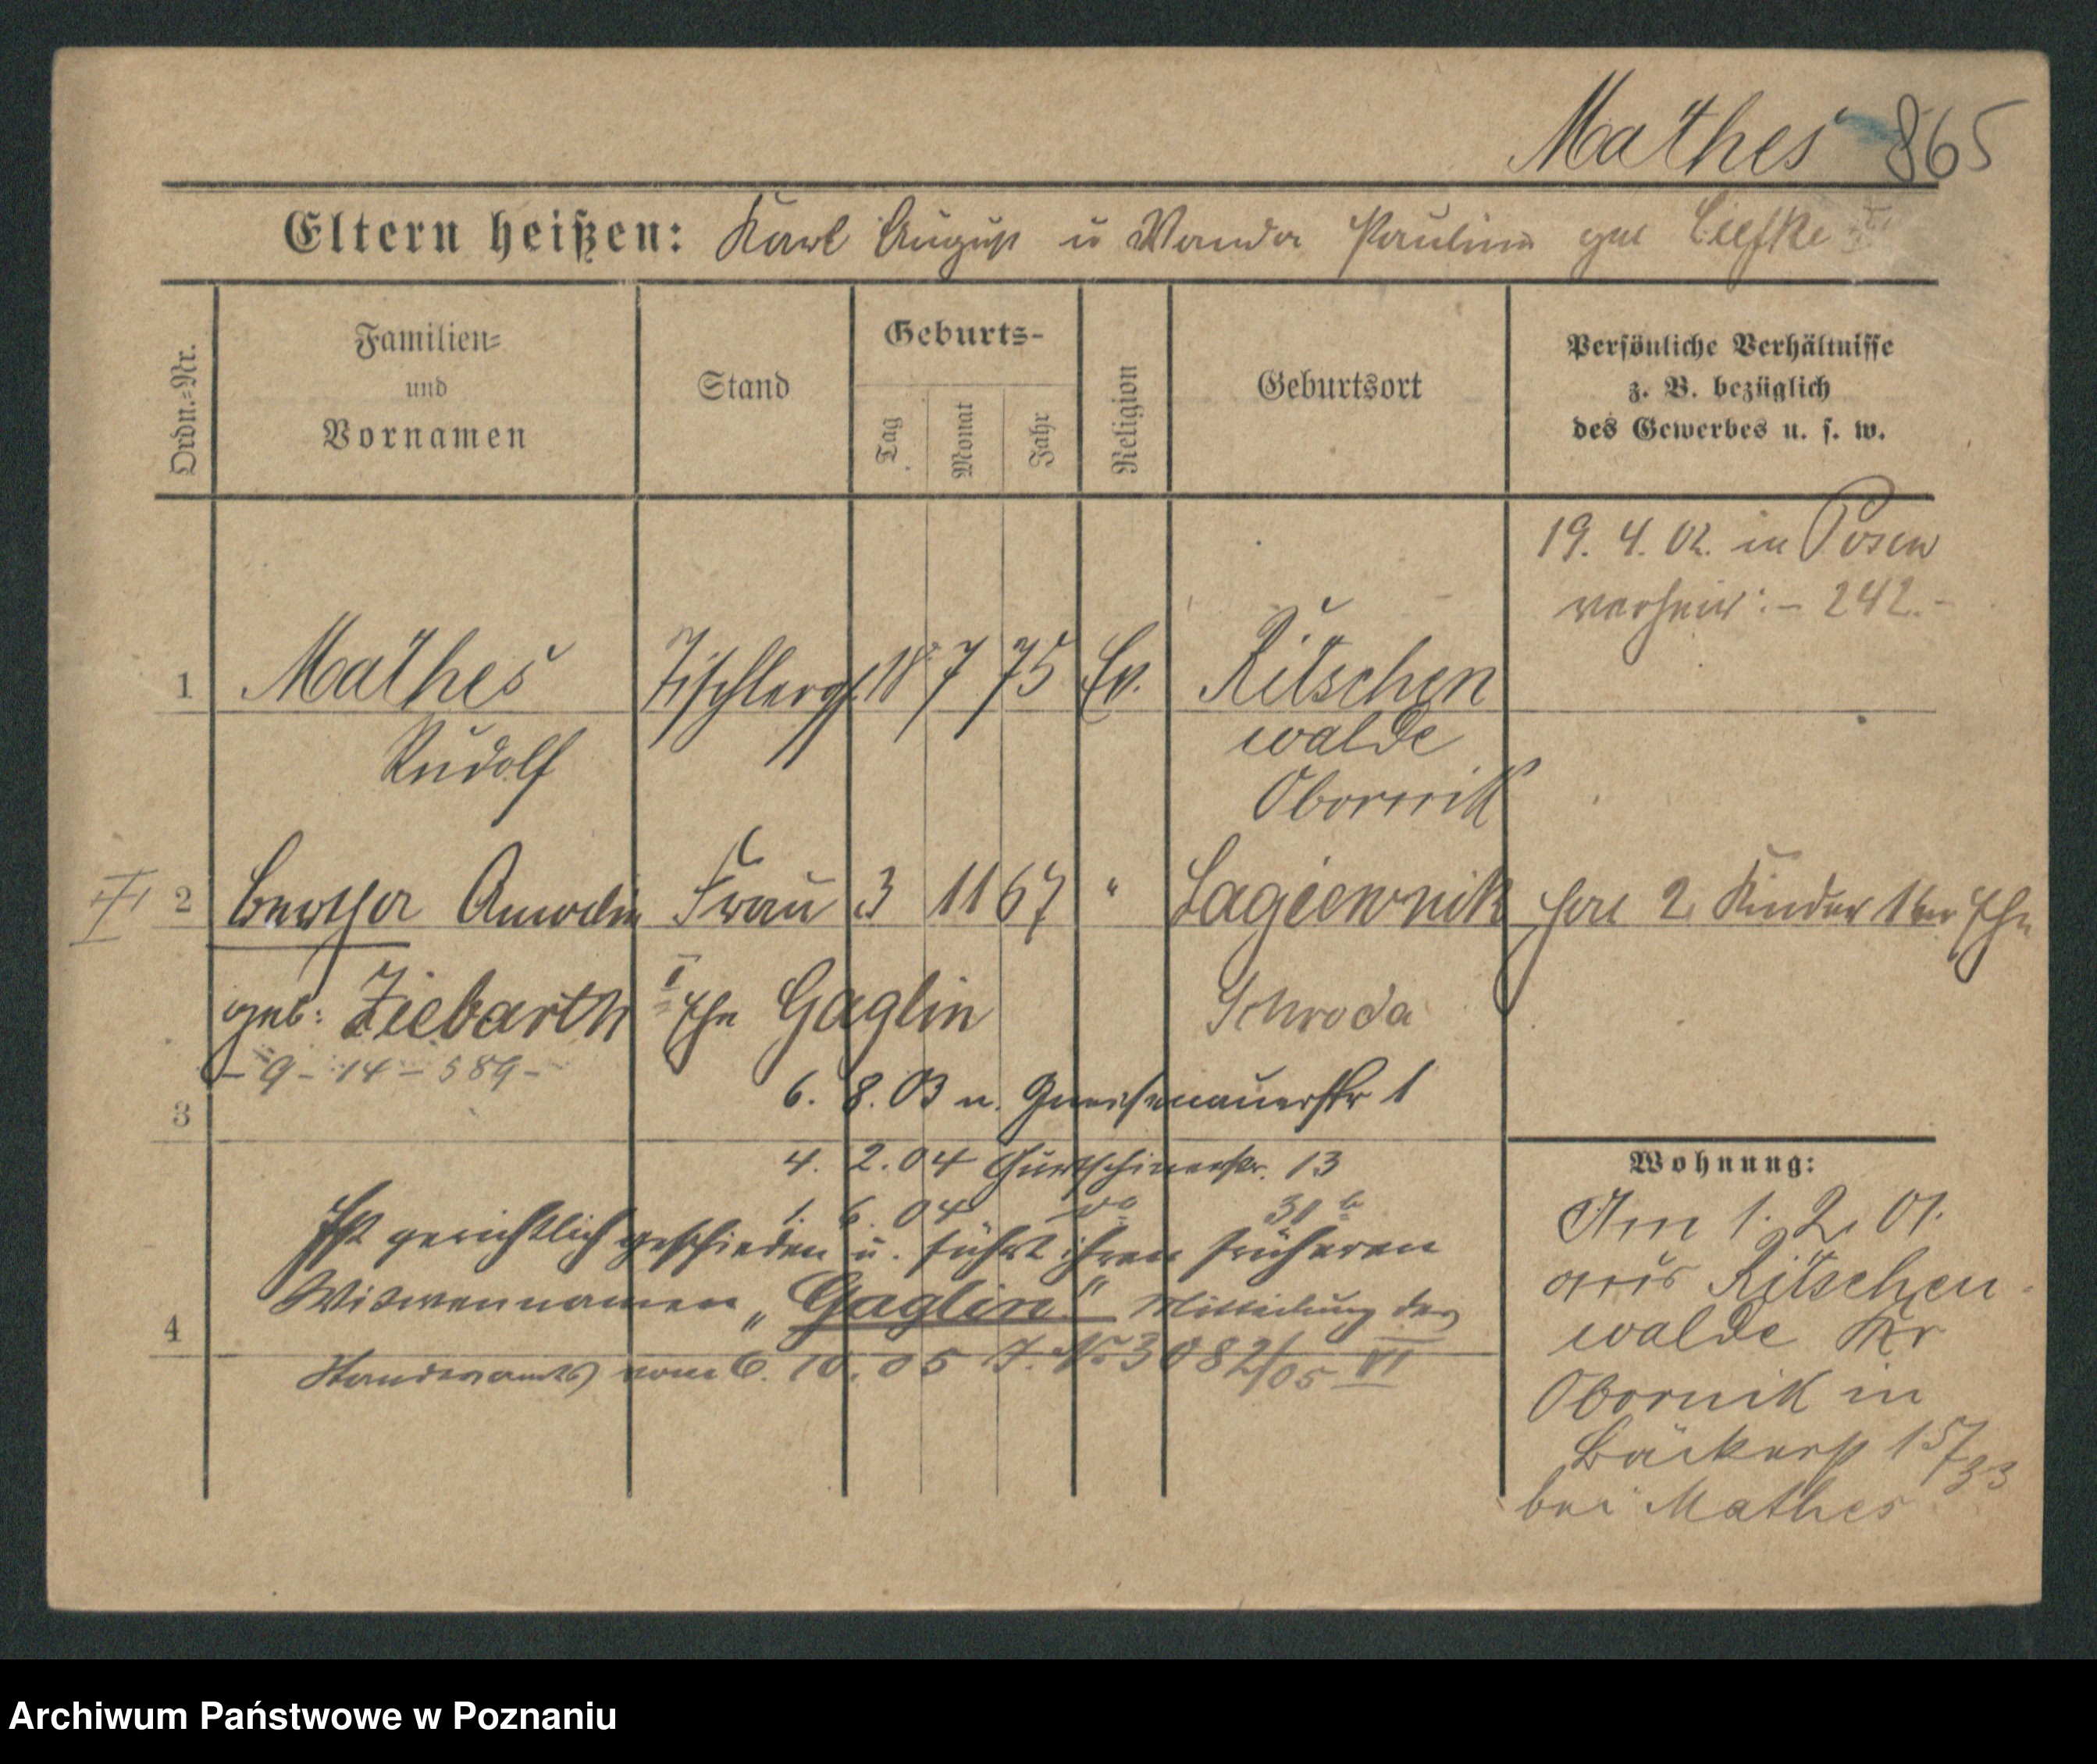 Mathes 865
Eltern heißen: Karl August u Wanda Pauline geb Liefke
Ordn.-Nr.
Familien-
und
Vornamen
Stand
Geburts-
Tag
Monat
Jahr
Religion
Geburtsort
Persönliche Verhältnisse
z. B. bezüglich
des Gewerbes u. s. w.
19. 4. 02. in Posen
verheir: - 242.-
1 Mathes Tischlerges 18 7 75 Ev. Ritschen
Rudolf
walde
Obornik
2 Bertha Amalie Frau 3 11 67 " Lagiewnik hat 2 Kinder 1ter Ehe
geb: Ziebarth I Ehe Gaglin Schroda
- 9 - 14 - 589 -
3
6. 8. 03 n. Gneisenauerstr 1
4. 2. 04 Gurtschinerstr. 13
1. 6. 04 do 31 b
Ist gerichtlich geschieden u. führt ihren früheren
Witwennamen „Gaglin." Mitteilung des
4
Standesamts vom 6. 10. 05 J. No 3082/05 VI
Wohnung:
Am 1. 2. 01.
aus Ritschen-
walde Kr
Obornik in
Bäckerst 15/33
bei Mathes
Archiwum Państwowe w Poznaniu